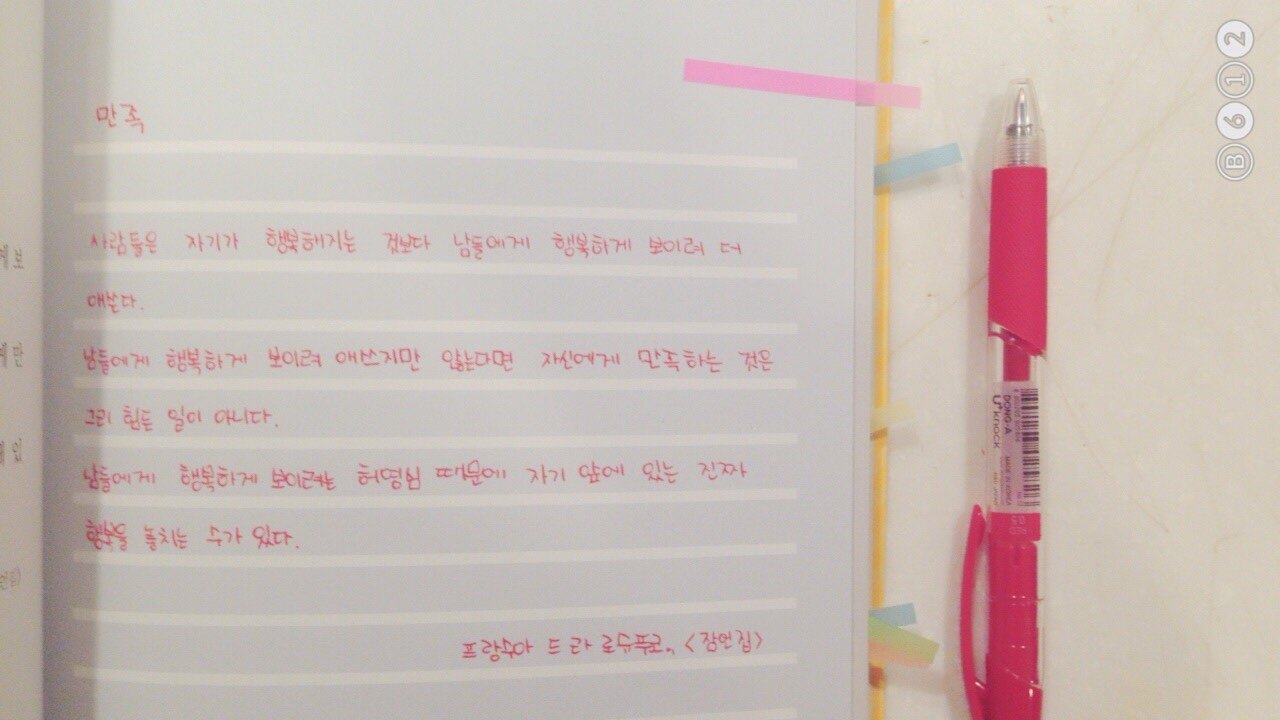 만족
사람들은 자기가 행복해지는 것보다 남들에게 행복하게 보이려 더
애쓴다.
남들에게 행복하게 보이려 애쓰지만 않는다면 자신에게 만족하는 것은
그리 힘든 일이 아니다.
남들에게 행복하게 보이려는 허영심 때문에 자기 앞에 있는 진짜
행복을 놓치는 수가 있다.
프랑수아 드 라 로슈푸코, <잠언집>
게 보
게 만
있
DONG-A
U+KNOCK
MADE IN KOREA
RED
0.5
B612